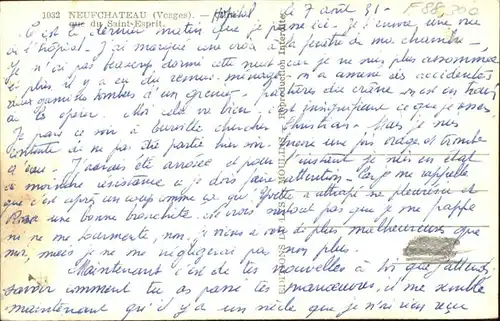 1032 NEUFCHATEAU (Vosges). — Hôpital
que du Saint-Esprit.
le 7 août 51 -
F88,300
C'est le dernier matin que je passe ici. Je t'écris une vue
de l'hôpital. J'ai marqué une croix à la fenêtre de ma chambre.
Je n'ai pas beaucoup dormi cette nuit car je ne suis plus assommée
et puis il y a eu du remue ménage, on a amené des accidentés
deux gamins tombés d'un grenier, fractures du crâne est en train
de les opérer. Moi cela va bien, c'est insignifiant ce que je
Je pars ce soir à Bureville chercher Christian. Mais je suis
contente de ne pas être partie hier soir encore une fois orage et trombe
d'eau. J'aurais été arrosée et pour l'instant je suis en état
de moindre résistance et je dois faire attention. Car je me rappelle
que c'est après un coup comme ça qu'Yvette a attrapé sa pleurésie et
Rosa une bonne bronchite. Je ne
ni ne me tourmente, non, je vous ai vu de plus malheureuses que
moi, mais je ne me négligerai pas non plus.
Maintenant c'est de tes nouvelles à toi que j'attends
savoir comment tu as passé tes manoeuvres, il me semble
maintenant qu'il y a un siècle que je n'ai rien reçu
Reproduction Interdite